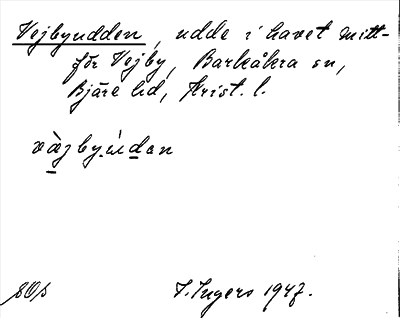 Vejbyudden, udde i havet mitt-
för Vejby, Barkåkra sn,
Bjäre hd, Krist. l.
vàȷby.úden
SOs I. Ingers 1947.